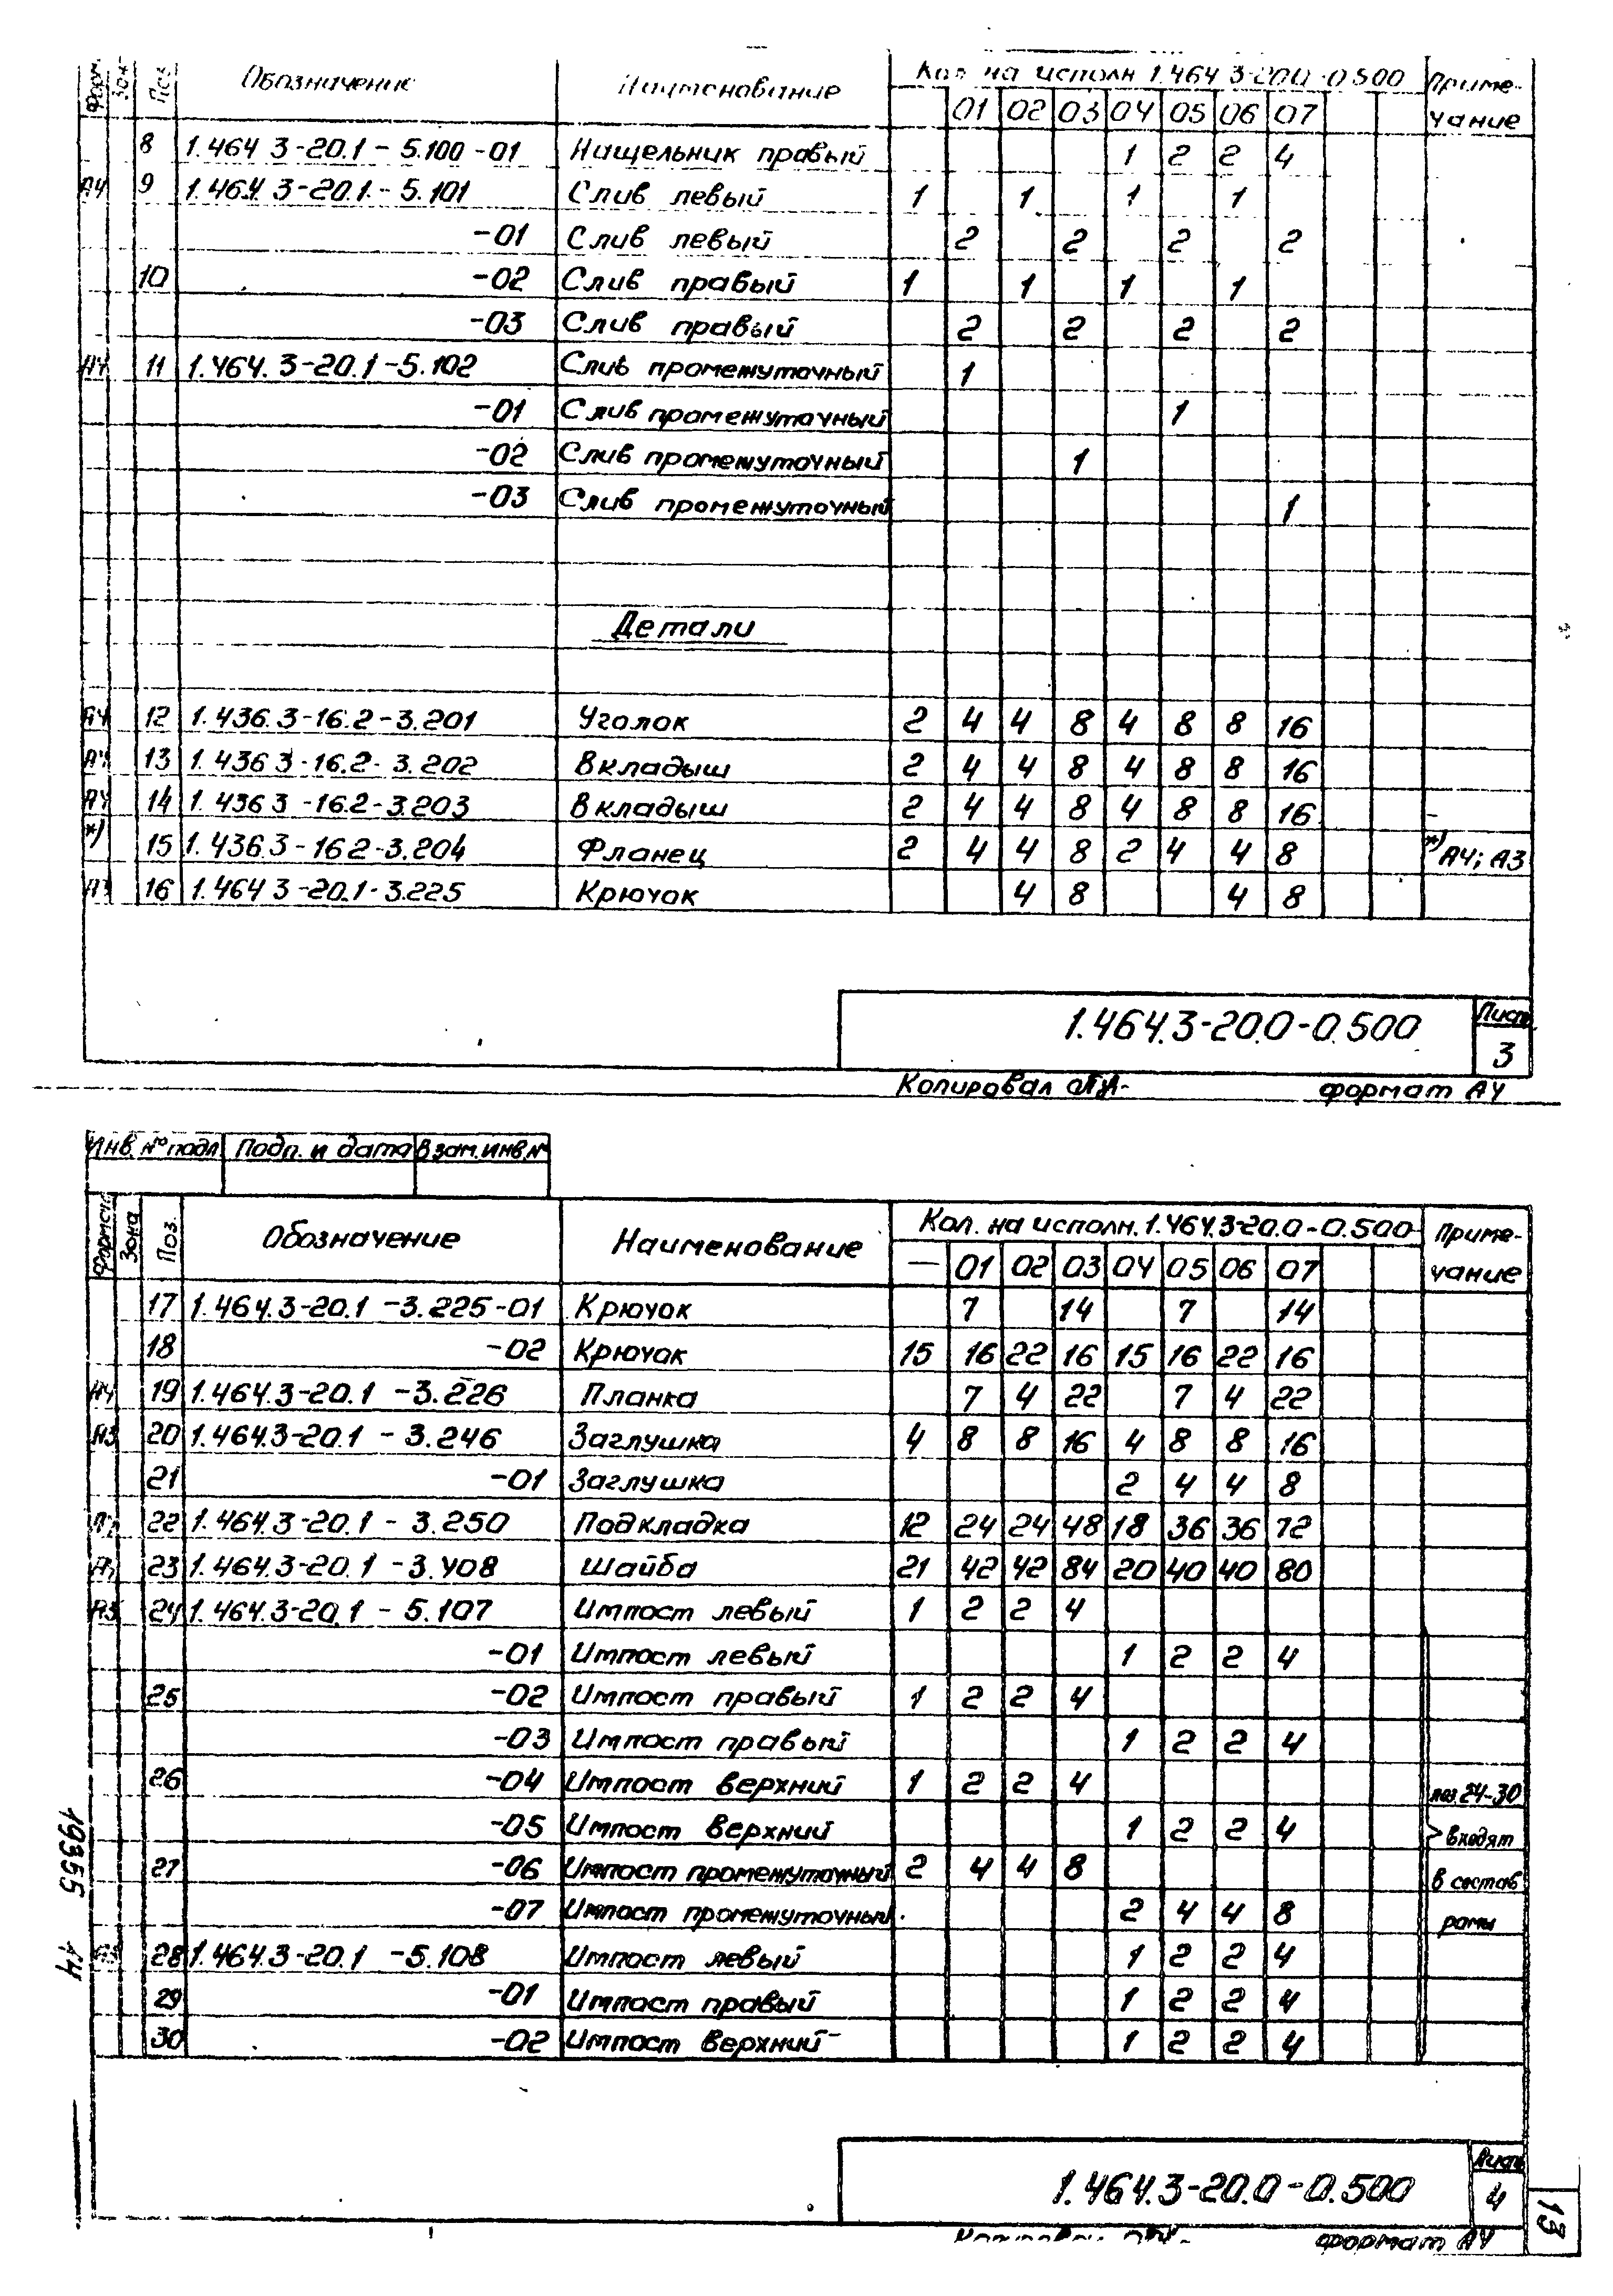 Форм. Зон. Поз. Обозначение Наименование Кол. на исполн 1.464 3-20.0-0.500 Приме-
01 02 03 04 05 06 07 чание
8 1.464 3-20.1-5.100-01 Нащельник правый 1 2 2 4
А4 9 1.464 3-20.1-5.101 Слив левый 1 1 1 1
-01 Слив левый 2 2 2 2
10 -02 Слив правый 1 1 1 1
-03 Слив правый 2 2 2 2
А4 11 1.464.3-20.1-5.102 Слив промежуточный 1
-01 Слив промежуточный 1
-02 Слив промежуточный 1
-03 Слив промежуточный 1
Детали
А4 12 1.436.3-16.2-3.201 Уголок 2 4 4 8 4 8 8 16
А4 13 1.436 3-16.2-3.202 Вкладыш 2 4 4 8 4 8 8 16
А4 14 1.436 3-16.2-3.203 Вкладыш 2 4 4 8 4 8 8 16
*) 15 1.436.3-16 2-3.204 Фланец 2 4 4 8 2 4 4 8 *) А4; А3
16 1.464 3-20.1-3.225 Крючок 4 8 4 8
1.464.3-20.0-0.500 Лист
3
Копировал формат А4
Инв. № подл Подп. и дата Взам. инв. №
Формат Зона Поз. Обозначение Наименование Кол. на исполн. 1.464.3-20.0-0.500 Приме-
— 01 02 03 04 05 06 07 чание
17 1.464.3-20.1-3.225-01 Крючок 7 14 7 14
18 -02 Крючок 15 16 22 16 15 16 22 16
А4 19 1.464.3-20.1-3.226 Планка 7 4 22 7 4 22
А3 20 1.464.3-20.1-3.246 Заглушка 4 8 8 16 4 8 8 16
21 -01 Заглушка 2 4 4 8
22 1.464.3-20.1-3.250 Подкладка 12 24 24 48 18 36 36 72
23 1.464.3-20.1-3.408 Шайба 21 42 42 84 20 40 40 80
А3 24 1.464.3-20.1-5.107 Импост левый 1 2 2 4
-01 Импост левый 1 2 2 4
25 -02 Импост правый 1 2 2 4
-03 Импост правый 1 2 2 4
26 -04 Импост верхний 1 2 2 4 поз. 24-30
-05 Импост верхний 1 2 2 4 входят
27 -06 Импост промежуточный 2 4 4 8 в состав
-07 Импост промежуточный 2 4 4 8 рамы
28 1.464.3-20.1-5.108 Импост левый 1 2 2 4
29 -01 Импост правый 1 2 2 4
30 -02 Импост верхний 1 2 2 4
19355 14
1.464.3-20.0-0.500 Лист
4
13
формат А4